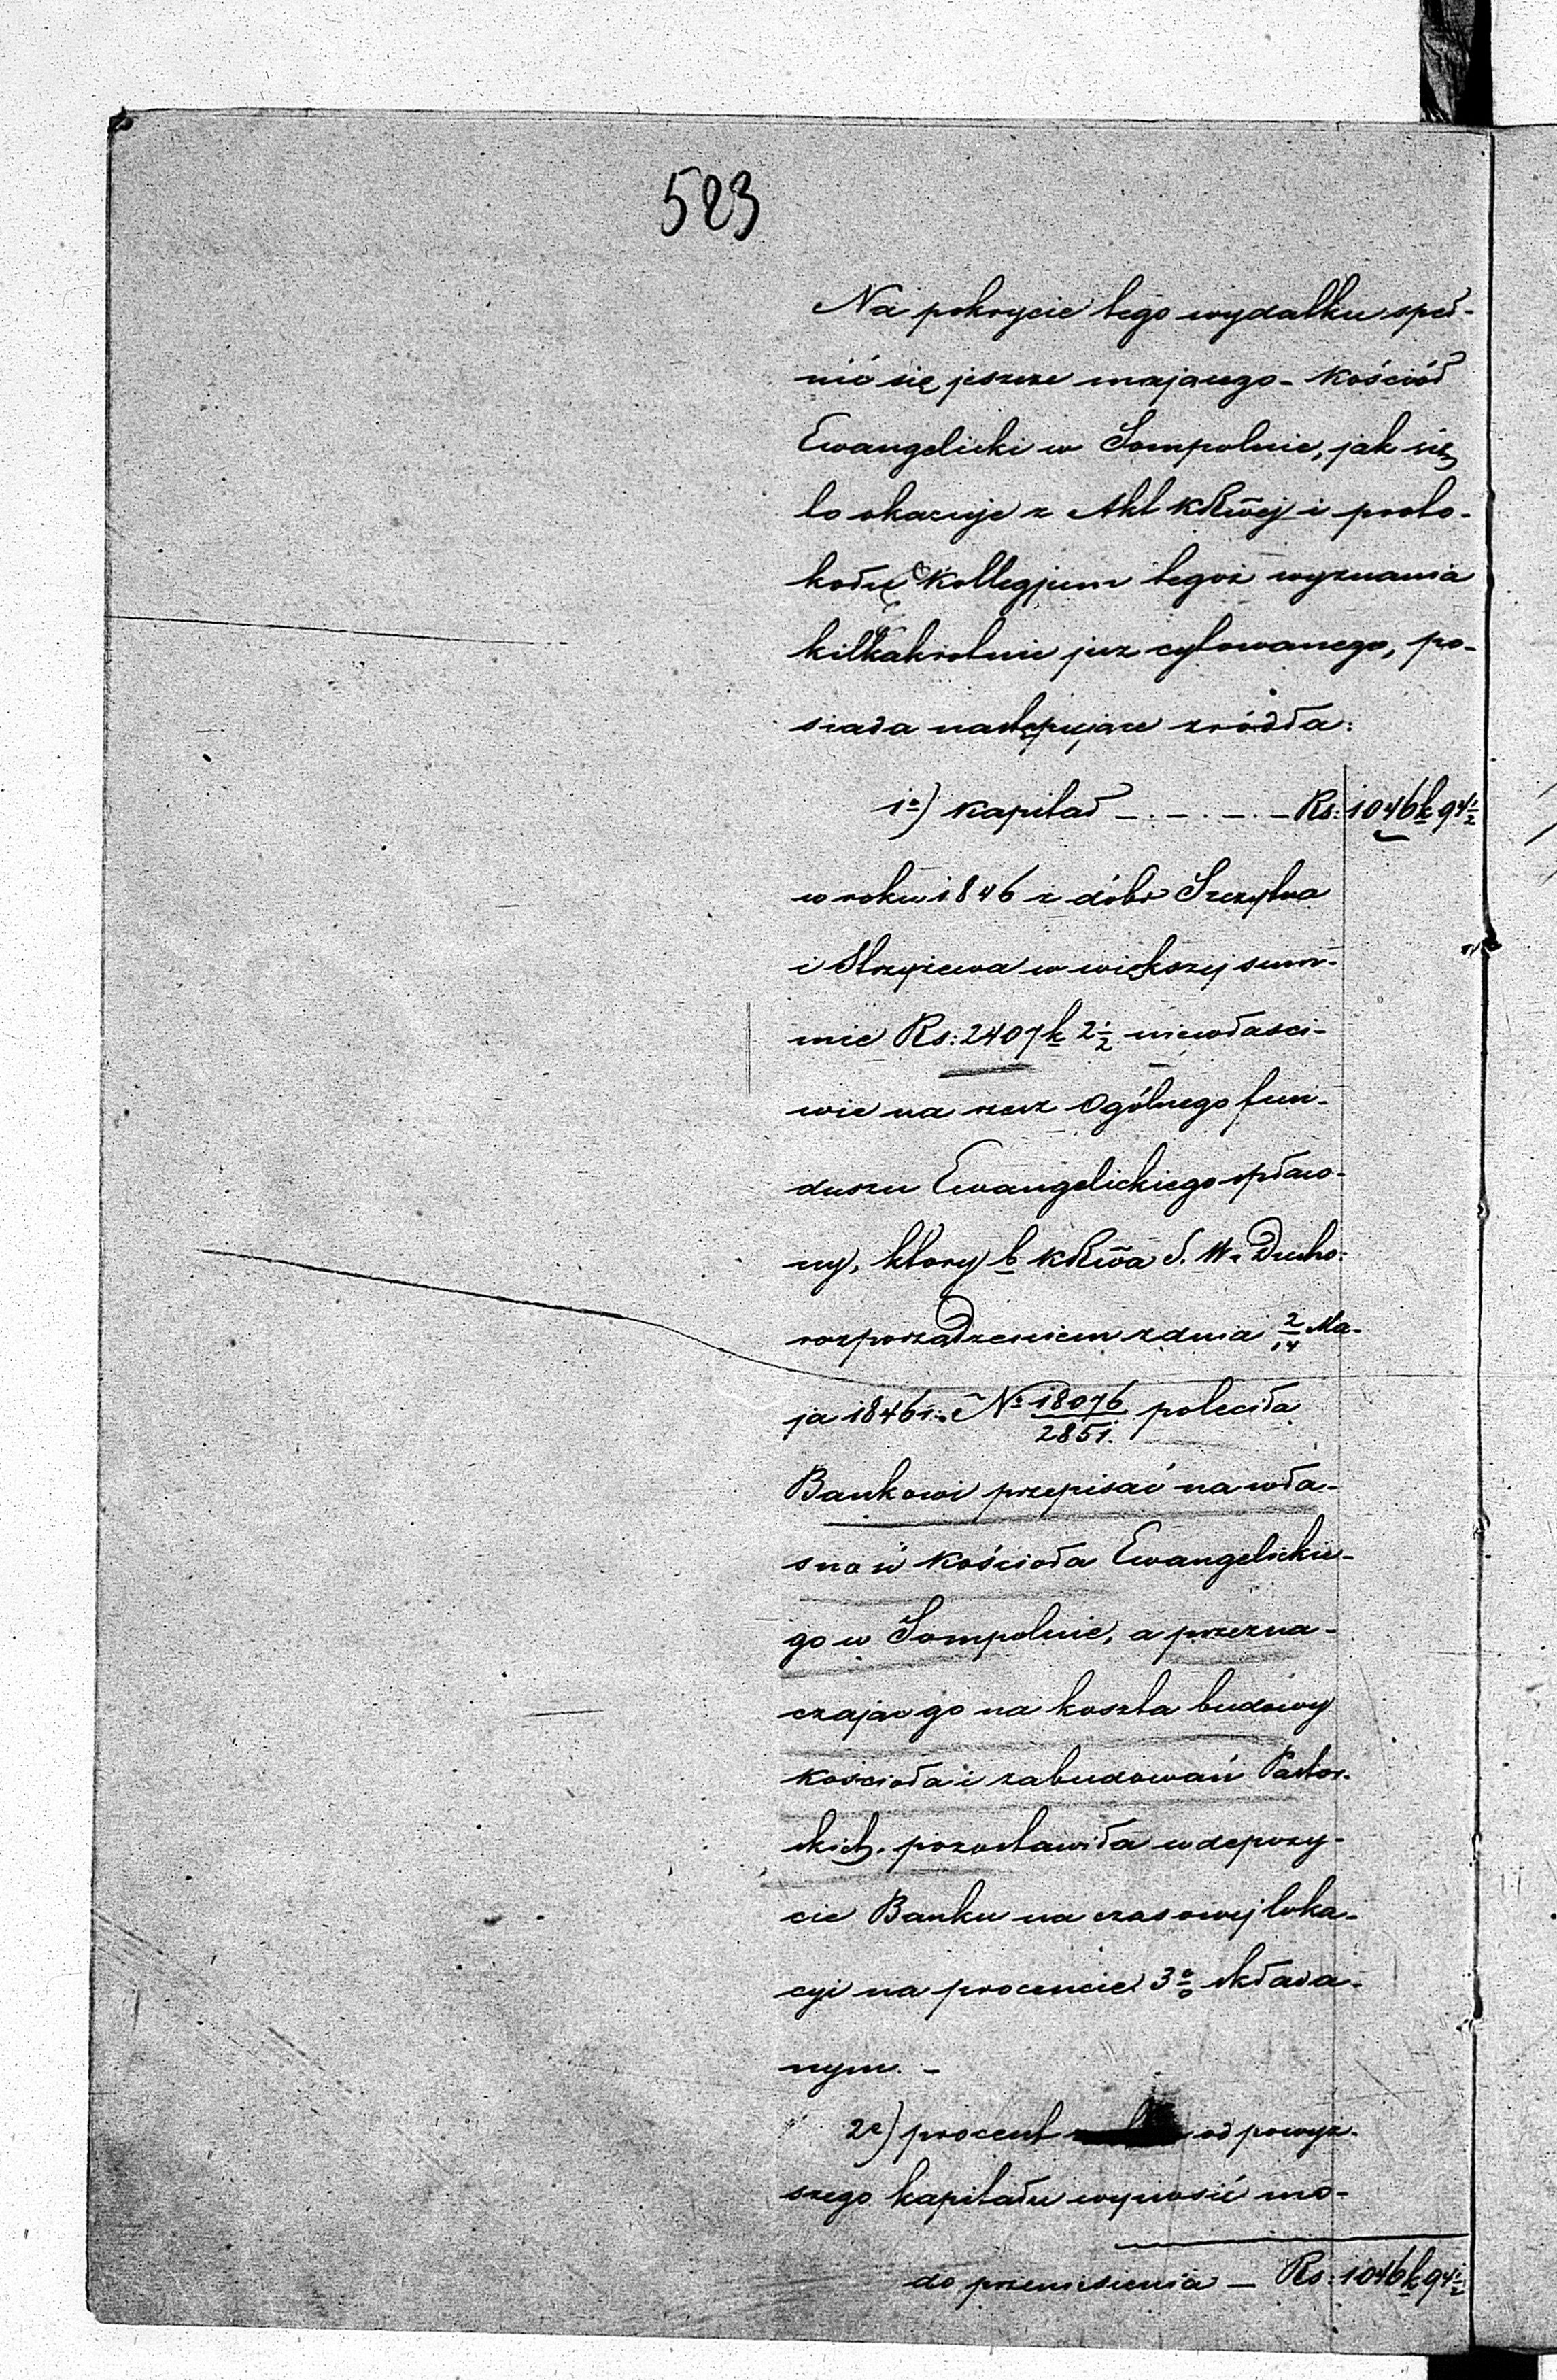 523
Na pokrycie tego wydatku speł-
nić się jeszcze mającego - Kościół
Ewangelicki w Sompolnie, jak się
to okazuje z Akt KRwej i proto-
kołu Kollegjum tegoż wyznania
kilkakrotnie już cytowanego, po-
siada następujące źródła:
1º) Kapitał – . – . – . – Rs: 1046 k 94½
w roku 1846 z dóbr Szczytna
i Strzyżewa w większej sum-
mie Rs: 2407 k 2½ niewłaści-
wie na rzecz Ogólnego fun-
duszu Ewangelickiego spłaco-
ny, który b. KRwa S. W. Ducho:
rozporządzeniem z dnia 2/14 Ma-
ja 1846 r: Nº 18076/2851. poleciła
Bankowi przepisać na wła-
sność Kościoła Ewangelickie-
go w Sompolnie, a przezna-
czając go na koszta budowy
kościoła i zabudowań Pastor-
skich, pozostawiła w depozy-
cie Banku na czasowej loka-
cyi na procencie 3% składa-
nym. –
2º) procent od powyż-
szego kapitału wynosić mo-
do przeniesienia – Rs: 1046 k 94½